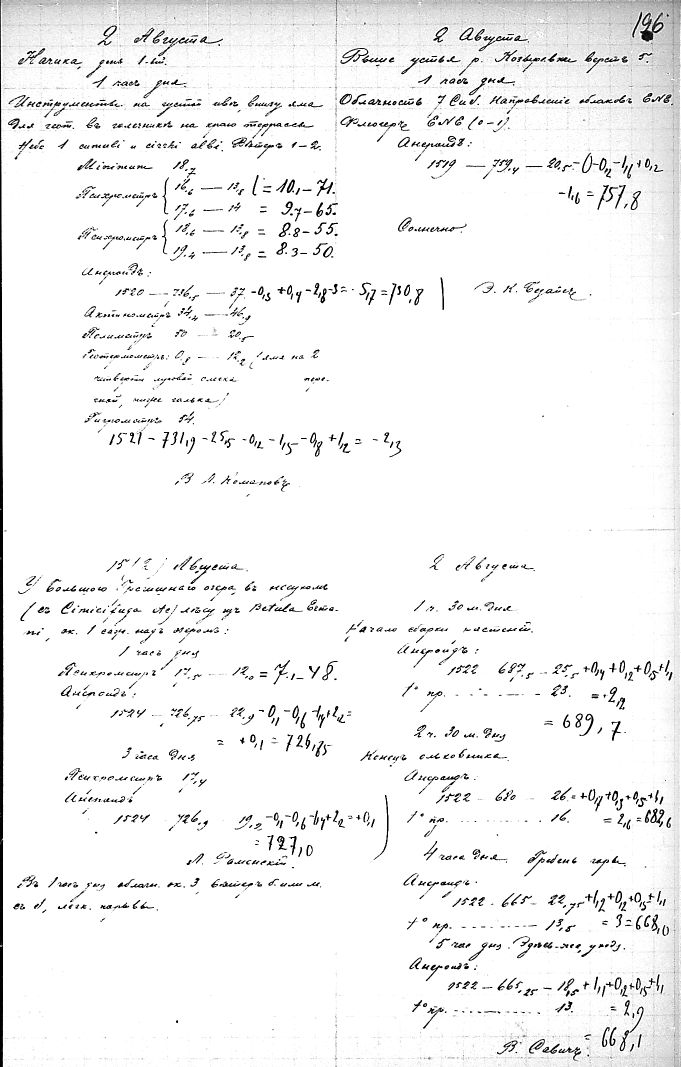 196
2 Августа.
Начика, день 1-ый.
1 часъ дня.
Инструменты на густой ивѣ, внизу яма
для геот. въ галечникѣ на краю террассы
Небо 1 cumuli и cirrhi albi. Вѣтеръ 1-2.
Minimum 18,7
Психрометръ 16,6 — 13,8 = 10,1-71.
17,6 — 14 = 9,7-65.
Психрометръ 18,6 — 13,8 = 8.8-55.
19,4 — 13,8 = 8.3-50.
Анероидъ:
1520 — 736,5 — 37 -0,3 +0,4 -2,8 -3 = -5,7 = 730,8
Актинометръ 34,4 — 46,9
50 — 20,5
Геотермометръ: 0,8 — 12,2 (яма на 2
четверти
ниже галька)
Гигрометръ 54.
1521 - 731,9 - 25,5 - 0,2 - 1,5 - 0,8 + 1,2 = -2,3
В. Л. Комаровъ.
2 Августа.
Выше устья р. Козыревки верстъ 5.
1 часъ дня.
Облачность 7 Направленіе облаковъ ENE.
Флюгеръ ENE (0-1).
Анероидъ:
1519 — 759,4 — 20,5 -0 -0,2 -1,6 +0,2
-1,6 = 757,8
Солнечно.
15 (2) Августа.
У Большого озера, въ
(съ Cimicifuga лѣсу изъ Betula Erma-
ni, ок. 1 саж. надъ озеромъ:
1 часъ дня
Психрометръ 17,5 — 12,0 = 7.1-48.
Анероидъ:
1524 — 726,75 — 22,9 -0,1 -0,6 -1,4 +2,2 =
= +0,1 = 726,85
3 часа дня
Психрометръ 17,4
Анероидъ
1524 — 726,9 — 19,2 -0,1 -0,6 -1,4 +2,2 = +0,1
= 727,0
Л. Раменскій.
Въ 1 часъ дня облачн. ок. 3, вѣтеръ б. или м.
съ легк. порывы.
2 Августа
1 ч. 30 м. дня
Начало сборки растеній.
Анероидъ:
1522 687,5 — 25,5 +0,4 +0,2 +0,5 +1,1
t° пр. - - - - - 23. = +2,2
= 689,7.
2 ч. 30 м. дня
Конецъ ольховника.
Анероидъ:
1522 — 680 — 26 = +0,7 +0,3 +0,5 +1,1
t° пр. - - - - - 16. = 2,6 = 682,6
4 часа дня. Гребень горы.
Анероидъ:
1522 - 665 - 22,75 +1,2 +0,2 +0,5 +1,1
t° пр. - - - - - 13,5 = 3 = 668,0
5 час дня. Здѣсь-же,
Анероидъ:
1522 — 665,25 — 18,5 +1,1 +0,2 +0,5 +1,1
t° пр. - - - - - 13. = 2,9
= 668,1
В. Савичъ.